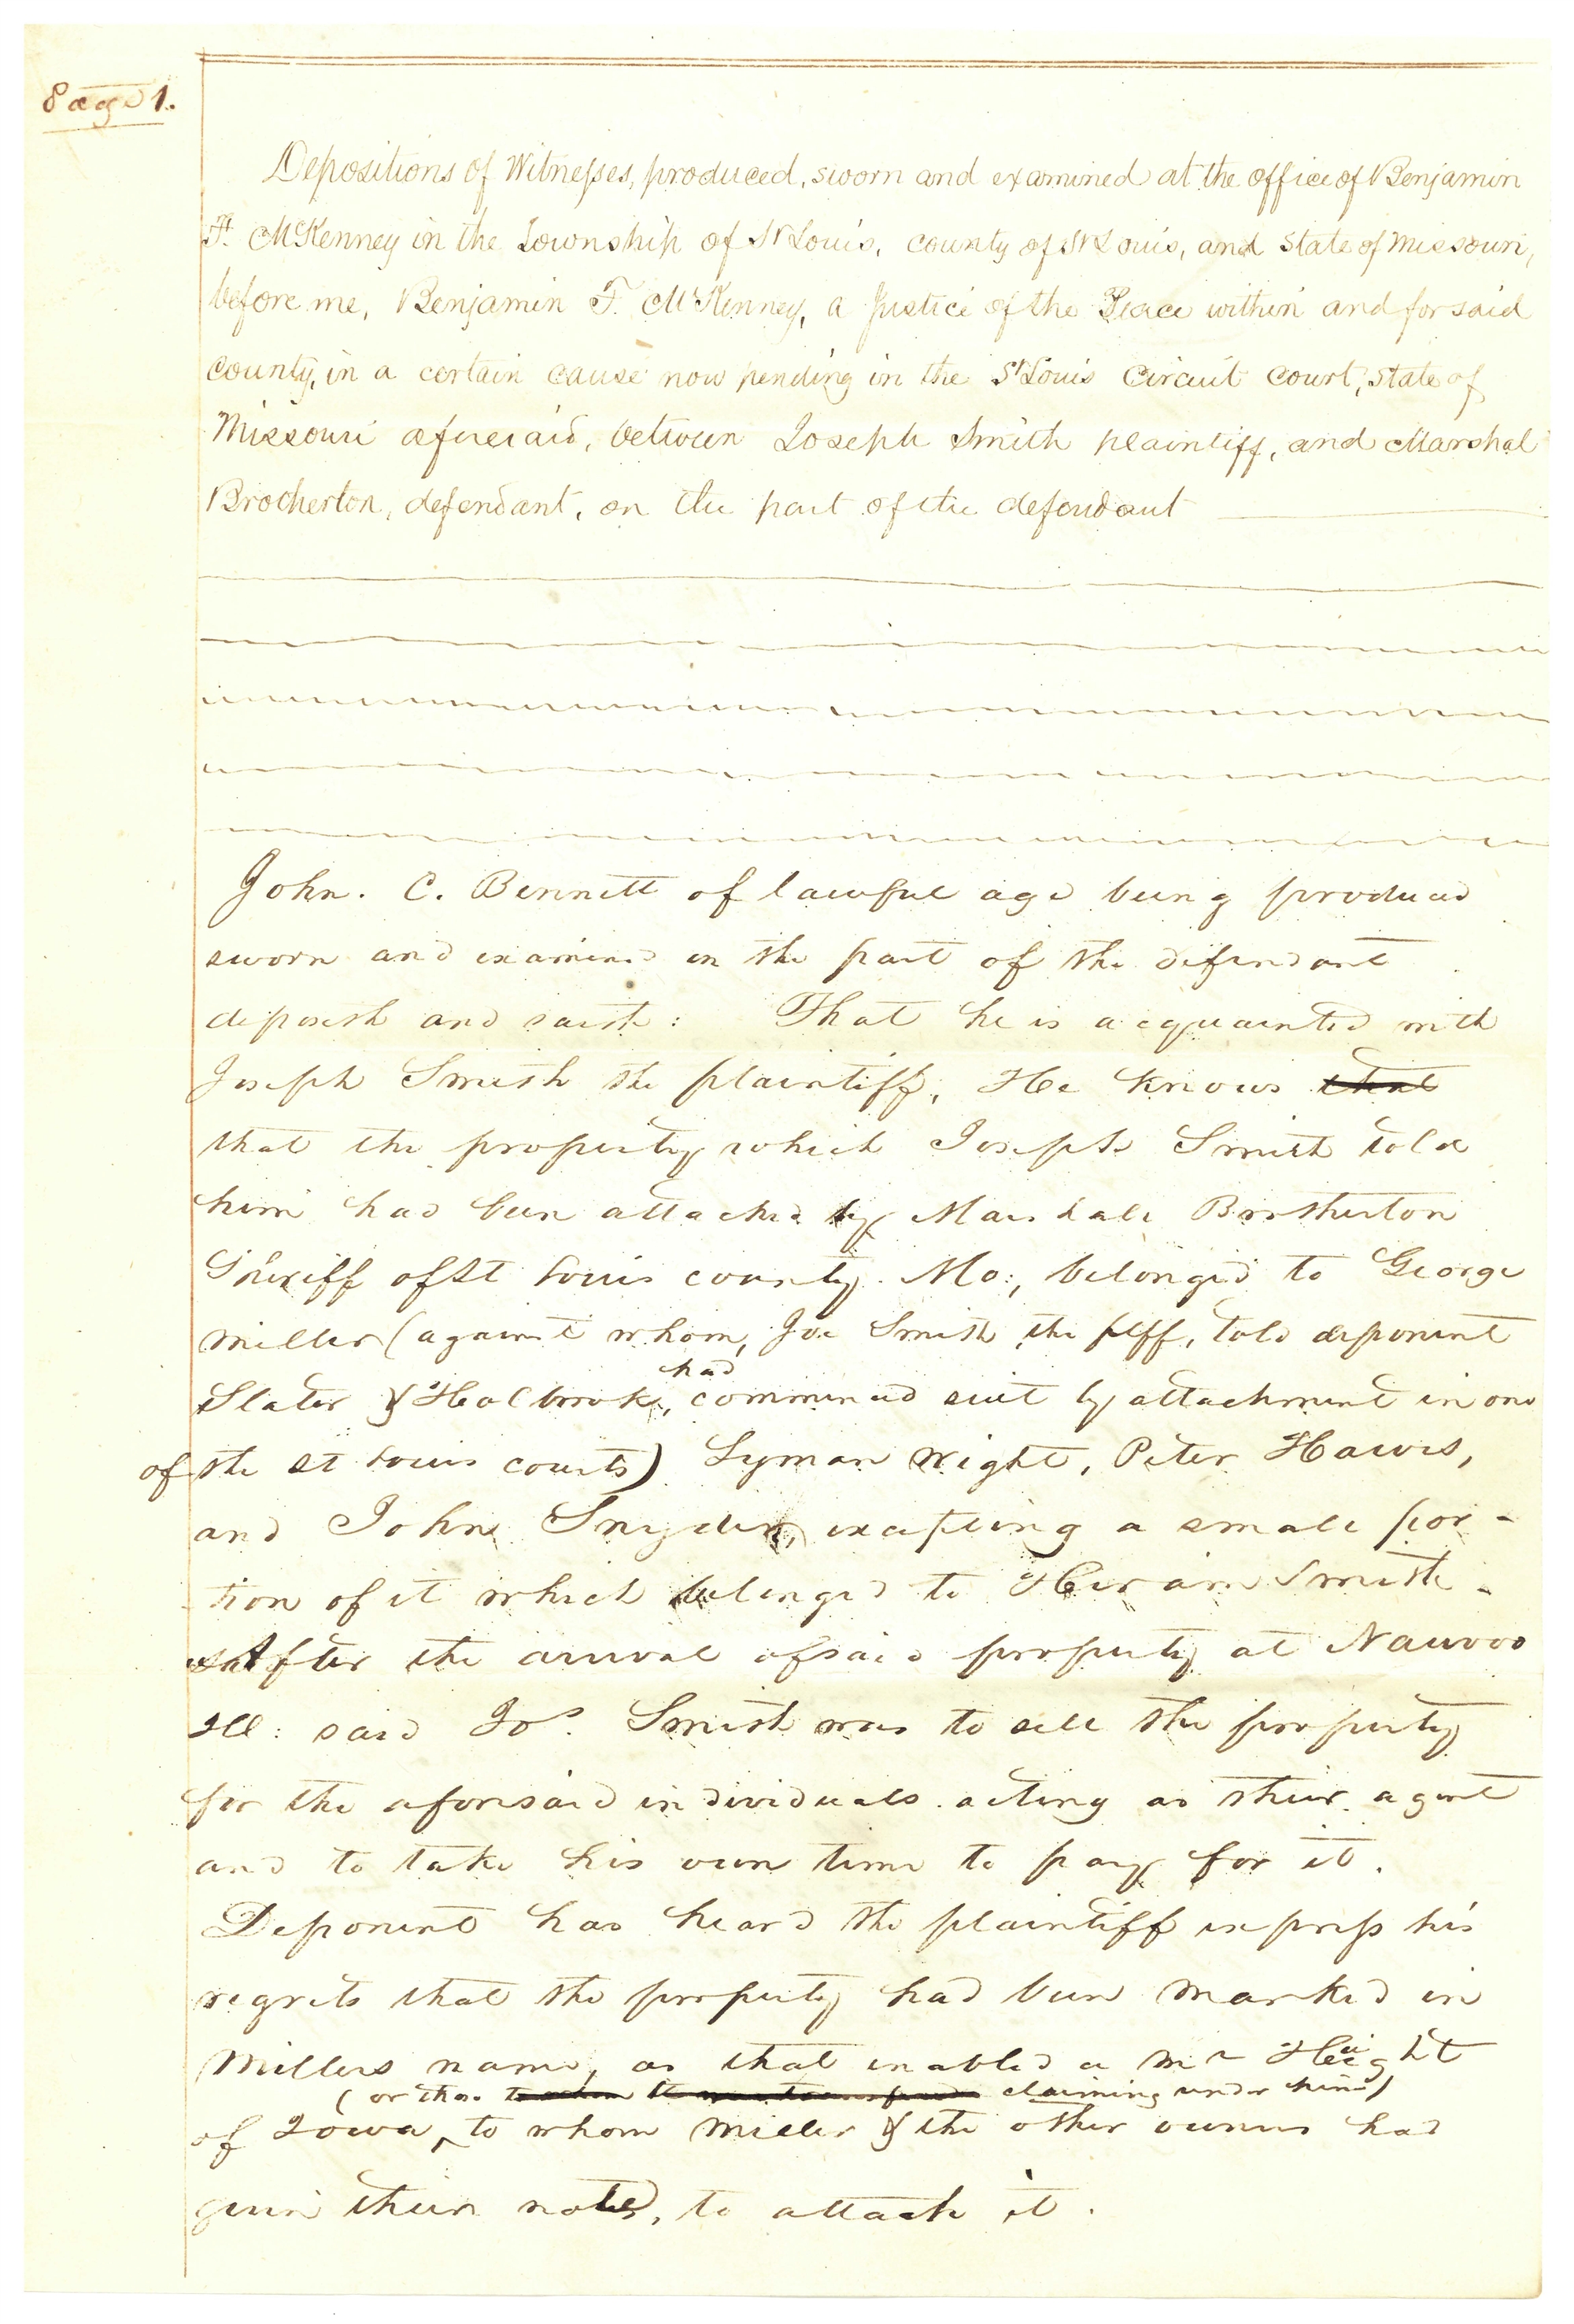 Page 1.
Depositions of Witnesses, produced, sworn and examined at the office of Benjamin
F. McKenney in the Township of St Louis, county of St Louis, and state of Missouri,
before me, Benjamin F. McKenney, a Justice of the Peace within and for said
county, in a certain cause now pending in the St Louis Circuit Court, state of
Missouri aforesaid, between Joseph Smith plaintiff, and Marshal
Brotherton, defendant, on the part of the defendant
John. C. Bennett of lawful age being produced
sworn and examined on the part of the defendant
deposeth and saith: That he is acquainted with
Joseph Smith the plaintiff, He knows that
that the property which Joseph Smith told
him had been attached by Marshall Brotherton
Sheriff of St Louis county. Mo:, belonged to George
Miller (against whom, Joe Smith, the plff, told deponent
had
Slater & Holbrook, commenced suit by attachment in one
of the St Louis courts) Lyman Wight, Peter Hawes,
and John Snyder, excepting a small por-
tion of it which belonged to Hiram Smith -
After the arrival of said property at Nauvoo
Ill: said Jos. Smith was to sell the property
for the aforesaid individuals. acting as their agent
and to take his own time to pay for it.
Deponent has heard the plaintiff express his
regrets that the property had been marked in
Millers name, as that enabled a Mr Height
(or those to whom it was transferred claiming under him)
of Iowa, to whom Miller & the other owners had
given their notes, to attach it.